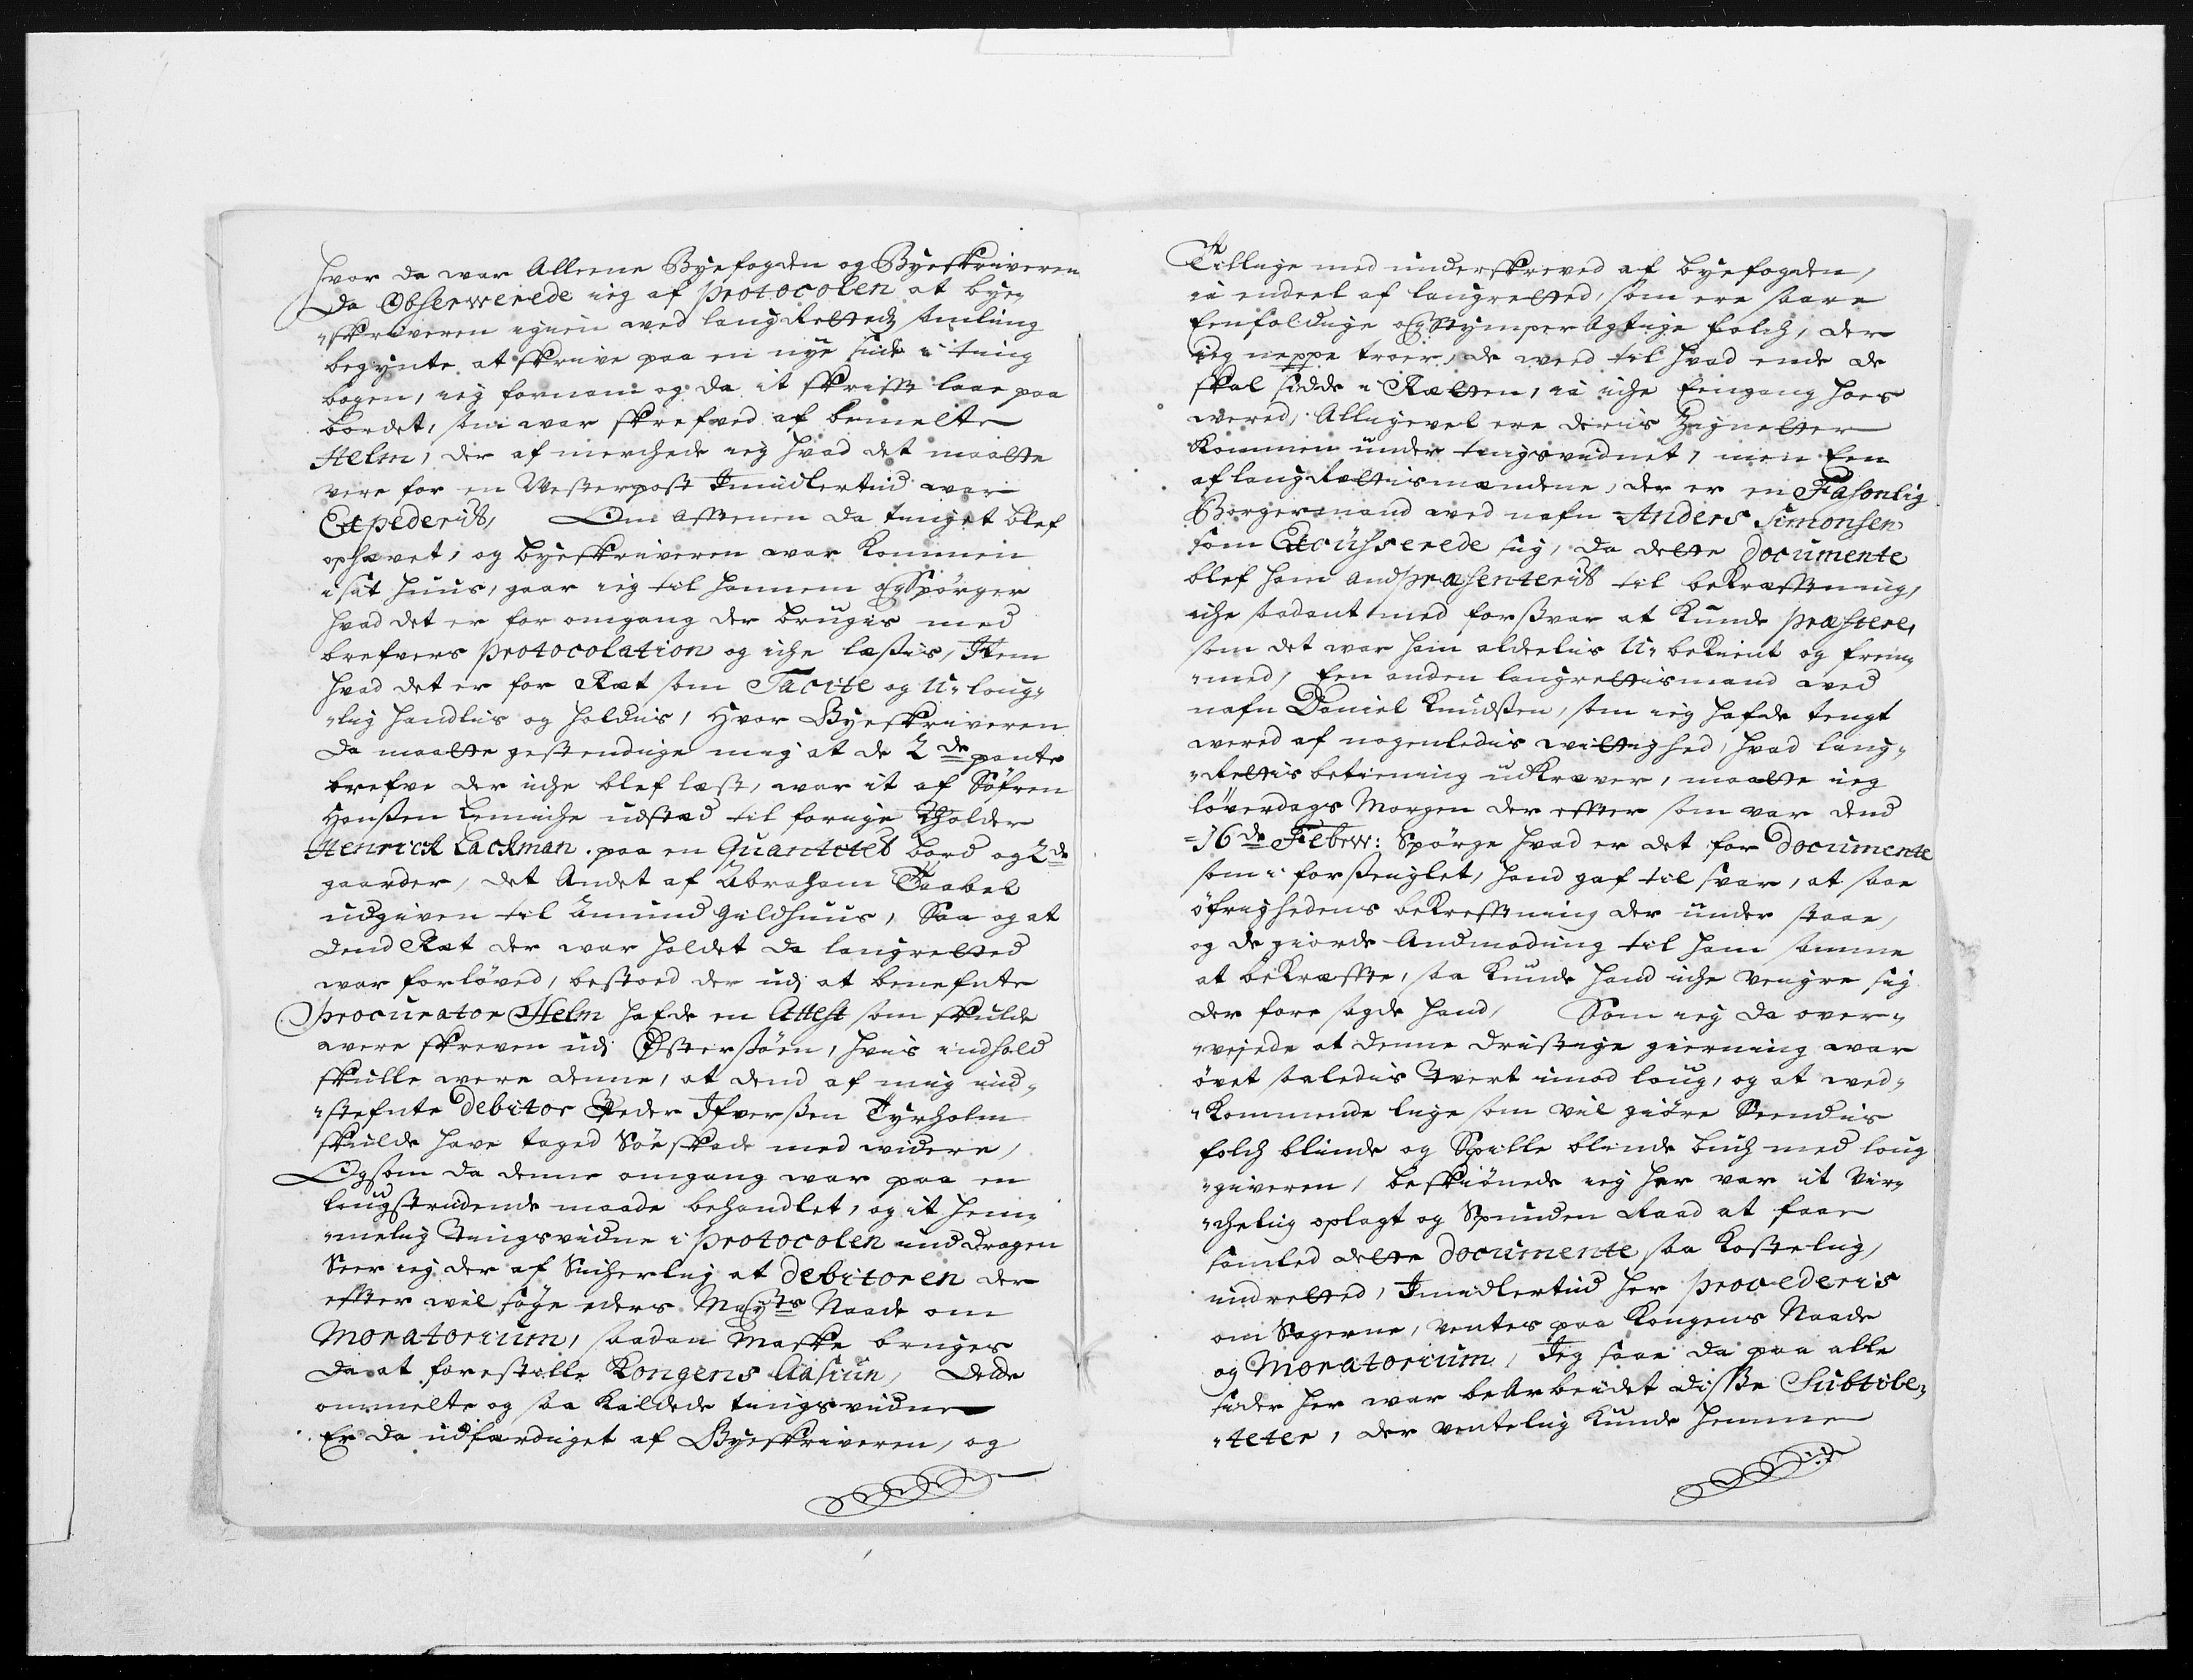 hvor da war Alleene Byefogden og Byeskriveren
Da Obserwerede ieg af protocolen at bye„
„skriveren igien wed laugRetteds samling
begynte at skrive paa en nye side i ting
bogen, ieg fornam og da it skrift laae paa
bordet, som war skrefved af bemelte
Helm, der af merchede ieg hvad det maatte
vere for en Westerpost Imidlertiid war
Expederit, Om afftenen da tinget blef
ophævet, og byeskriveren war kommen
i sit huus, gaar ieg til hannem og Spörger
hvad det er for omgang der bruges med
brefvers protocolation og iche læsis, Item
hvad det er for Ræt som Tacite og U„loug„
„lig handlis og holdis, Hvor Byeskriveren
da maatte gestendige mig at de 2de pante
brefve der iche blef læst, war it af Söfren
Hanßen Lemiche udstæd til forige tholder
Henrick Lackman paa en Quantitet bord og 2de
gaarder, det Andet af Abraham Taabel
udgiven til Amund Gildhuus, Saa og at
dend Ræt der war holdet da laugretted
war forlöved, bestoed der udj at benefnte
Procurator Helm hafde en Attest som skulde
were skreven udj Östersöen, hvis indhold
skulle were denne, at dend af mig ind„
„stefnte Debitor Peder Ifverßen Tyrholm
skulde have taged Söeskade med widere,
Og som da denne omgang war paa en
lougstridende maade behandlet, og it hem„
„melig tingsvidne i protocolen inddragen
Seer ieg der af Sicherlig at debitoren der
effter wil söge eders Maysts Naade om
Moratorium, saadan maske bruges
da at forestille Kongens Casiun, Dette
ommelte og saa kaldede tingsvidne
Er da udfærdiget af Byeskriveren, og
Tillige med underskreved af byefogden,
ia endeel af laugretted, som ere saare
Eenfoldige og Stymperagtige folch, der
ieg neppe troer, de weed til hvad ende de
skal sidde i Rætten, ia iche Eengang hoes
wered, Alligevel ere deris Zignetter
kommen under tingsvidnet, men Een
af laugRettismændene, der er en Fasonlig
Borgermand wed nafn Anders Simonsen
som Excusserede sig, da dette documente
blef ham andpræsenterit til bekræfftning,
iche saadant med forßvar at kunde præstere,
som det war ham aldeelis U„bekient og frem„
„med, Een anden laugrettismand wed
nafn Daniel Knudßen, som ieg hafde tengt
wered af nogenledis wittighed, hvad laug„
„Rettis betiening udkræver, maatte ieg
löverdags Morgen der effter som var dend
16de Febrw: Spörge hvad er det for documente
som i forßeiglet, hand gaf til svar, at saae
öfrighedens bekrefftning der under staae,
og de giorde Andmoding til ham samme
at bekræffte, saa kunde hand iche veigre sig
der fore sagde hand, Som ieg da over„
„vejede at denne dristige gierning war
övet saaledis tvert imod loug, og at wed„
„kommende lige som vil giöre Seendis
folch blinde og Spille blinde buch med loug
„giveren, beskiönede ieg her var it vir„
„chelig oplagt og Spunden Raad at faae
samled dette documente saa kostelig,
indretted, Imidlertiid her procederis
om Sagerne, ventes paa Kongens Naade
og Moratorium, Jeg saae da paa alle
sider her war beArbeidet disse Subtile„
„teter, der ventelig kunde hemme